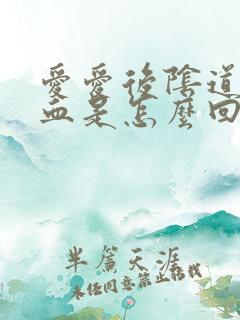 愛愛後陰道
血是怎麼回
半簾天涯
未经同意禁止转载